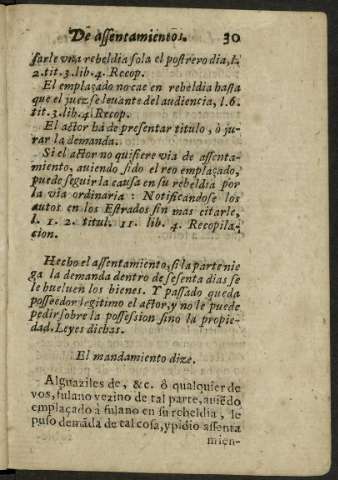 De assentamientos. 30
sarle vna rebeldia sola el postrero dia, l.
2. tit. 3. lib. 4. Recop.
El emplaçado no cae en rebeldia hasta
que el juez se leuante del audiencia, l. 6.
tit. 3. lib. 4. Recop.
El actor há de presentar titulo, ò ju-
rar la demanda.
Si el actor no quisiere via de assenta-
miento, auiendo sido el reo emplaçado,
puede seguir la causa en su rebeldia por
la via ordinaria: Notificandose los
autos en los Estrados sin mas citarle,
l. 1. 2. titul. 11. lib. 4. Recopila-
cion.
Hecho el assentamiento, si la parte nie
ga la demanda dentro de sesenta dias se
le bueluen los bienes. Y passado queda
posseedor legitimo el actor, y no le puede
pedir sobre la possession sino la propie-
dad. Leyes dichas.
El mandamiento dize.
Alguaziles de, &c. ô qualquier de
vos, fulano vezino de tal parte, auiẽdo
emplaçado à fulano en su rebeldia, le
puso demãda de tal cosa, y pidio assenta
mien-